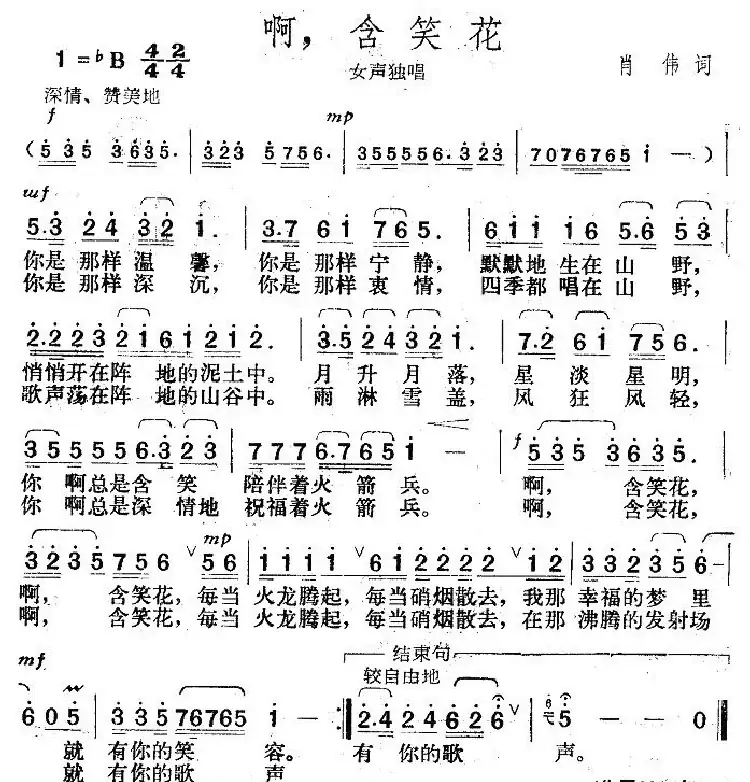 啊，含笑花
1=♭B 4/4 2/4
女声独唱
肖伟词
深情、赞美地
f mp
(5 3 5 3635. 323 5756. 3555556.323 70767665 i －)
mf
5.3 24 32 1. 3.7 61 765. 611 16 5.6 53
你是那样温馨，你是那样宁静，默默地生在山野，
你是那样深沉，你是那样衷情，四季都唱在山野，
2.223 216 1212. 3.5 24 321. 7.2 61 756.
悄悄开在阵地的泥土中。月升月落，星淡星明，
歌声荡在阵地的山谷中。雨淋雪盖，风狂风轻，
355555 6.3 23 777 6.765 i － f 535 3635.
你啊总是含笑陪伴着火箭兵。啊，含笑花，
你啊总是深情地祝福着火箭兵。啊，含笑花，
mp
3235 756 ∨ 56 1111 ∨ 61 2222 ∨ 12 3323 35 6－
啊，含笑花，每当火龙腾起，每当硝烟散去，我那幸福的梦里
啊，含笑花，每当火龙腾起，每当硝烟散去，在那沸腾的发射场
mf
结束句
较自由地
6 0 5 335 76765 1 － :‖ 2.4 24 626 ∨ 5 － － 0 ‖
就有你的笑容。有你的歌声。
就有你的歌声